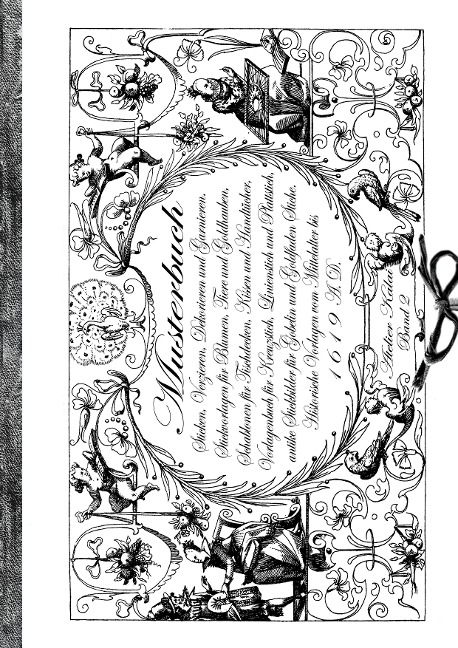 Musterbuch
Sticken, Verzieren, Dekorieren und Garnieren,
Stickvorlagen für Blumen, Tiere und Goldhauben,
Schablonen für Tischdecken, Kissen und Handtücher,
Vorlagenbuch für Kreuzstich, Linienstich und Plattstich,
antike Stickbilder für Gobelin und Goldfaden Sticke.
Historische Vorlagen vom Mittelalter bis
1619 A.D.
Atelier Kalai
Band 2